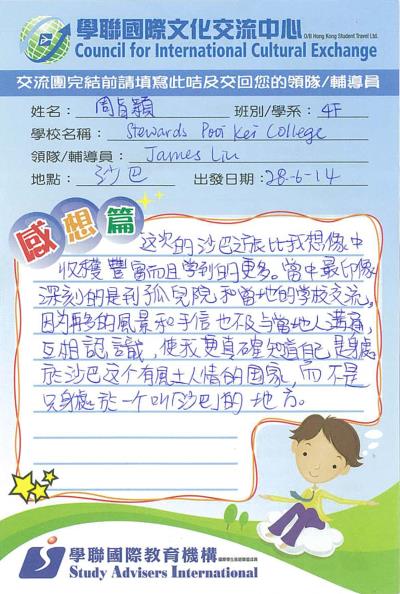 學聯國際文化交流中心
O/B Hong Kong Student Travel Ltd.
Council for International Cultural Exchange
交流團完結前請填寫此咭及交回您的領隊/輔導員
姓名: 周旨穎 班別/學系: 4F
學校名稱: Stewards Pooi Kei College
領隊/輔導員: James Liu
地點: 沙巴 出發日期: 28-6-14
感想篇
这次的沙巴之旅比我想像中
收獲豐富而且學到的更多。當中最印像
深刻的是到孤兒院和當地的學校交流,
因为再多的風景和手信也不及与當地人溝通,
互相認識,使我更真確知道自己是身處
於沙巴这个有風土人情的國家,而不是
只身處於一个叫「沙巴」的地方。
學聯國際教育機構
Study Advisers International